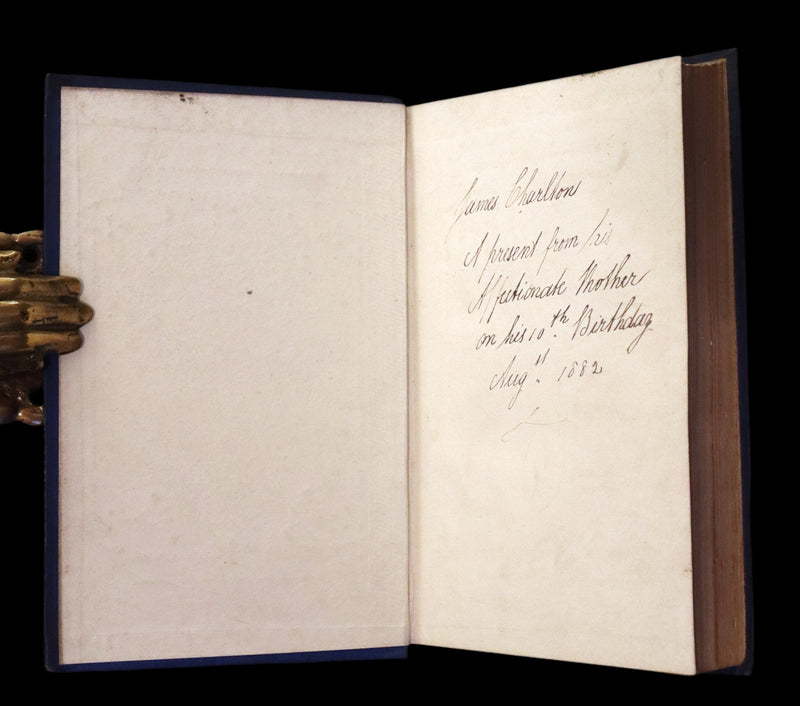 James Charlton
A present from his
Affectionate Mother
on his 10th. Birthday
Aug". 1882